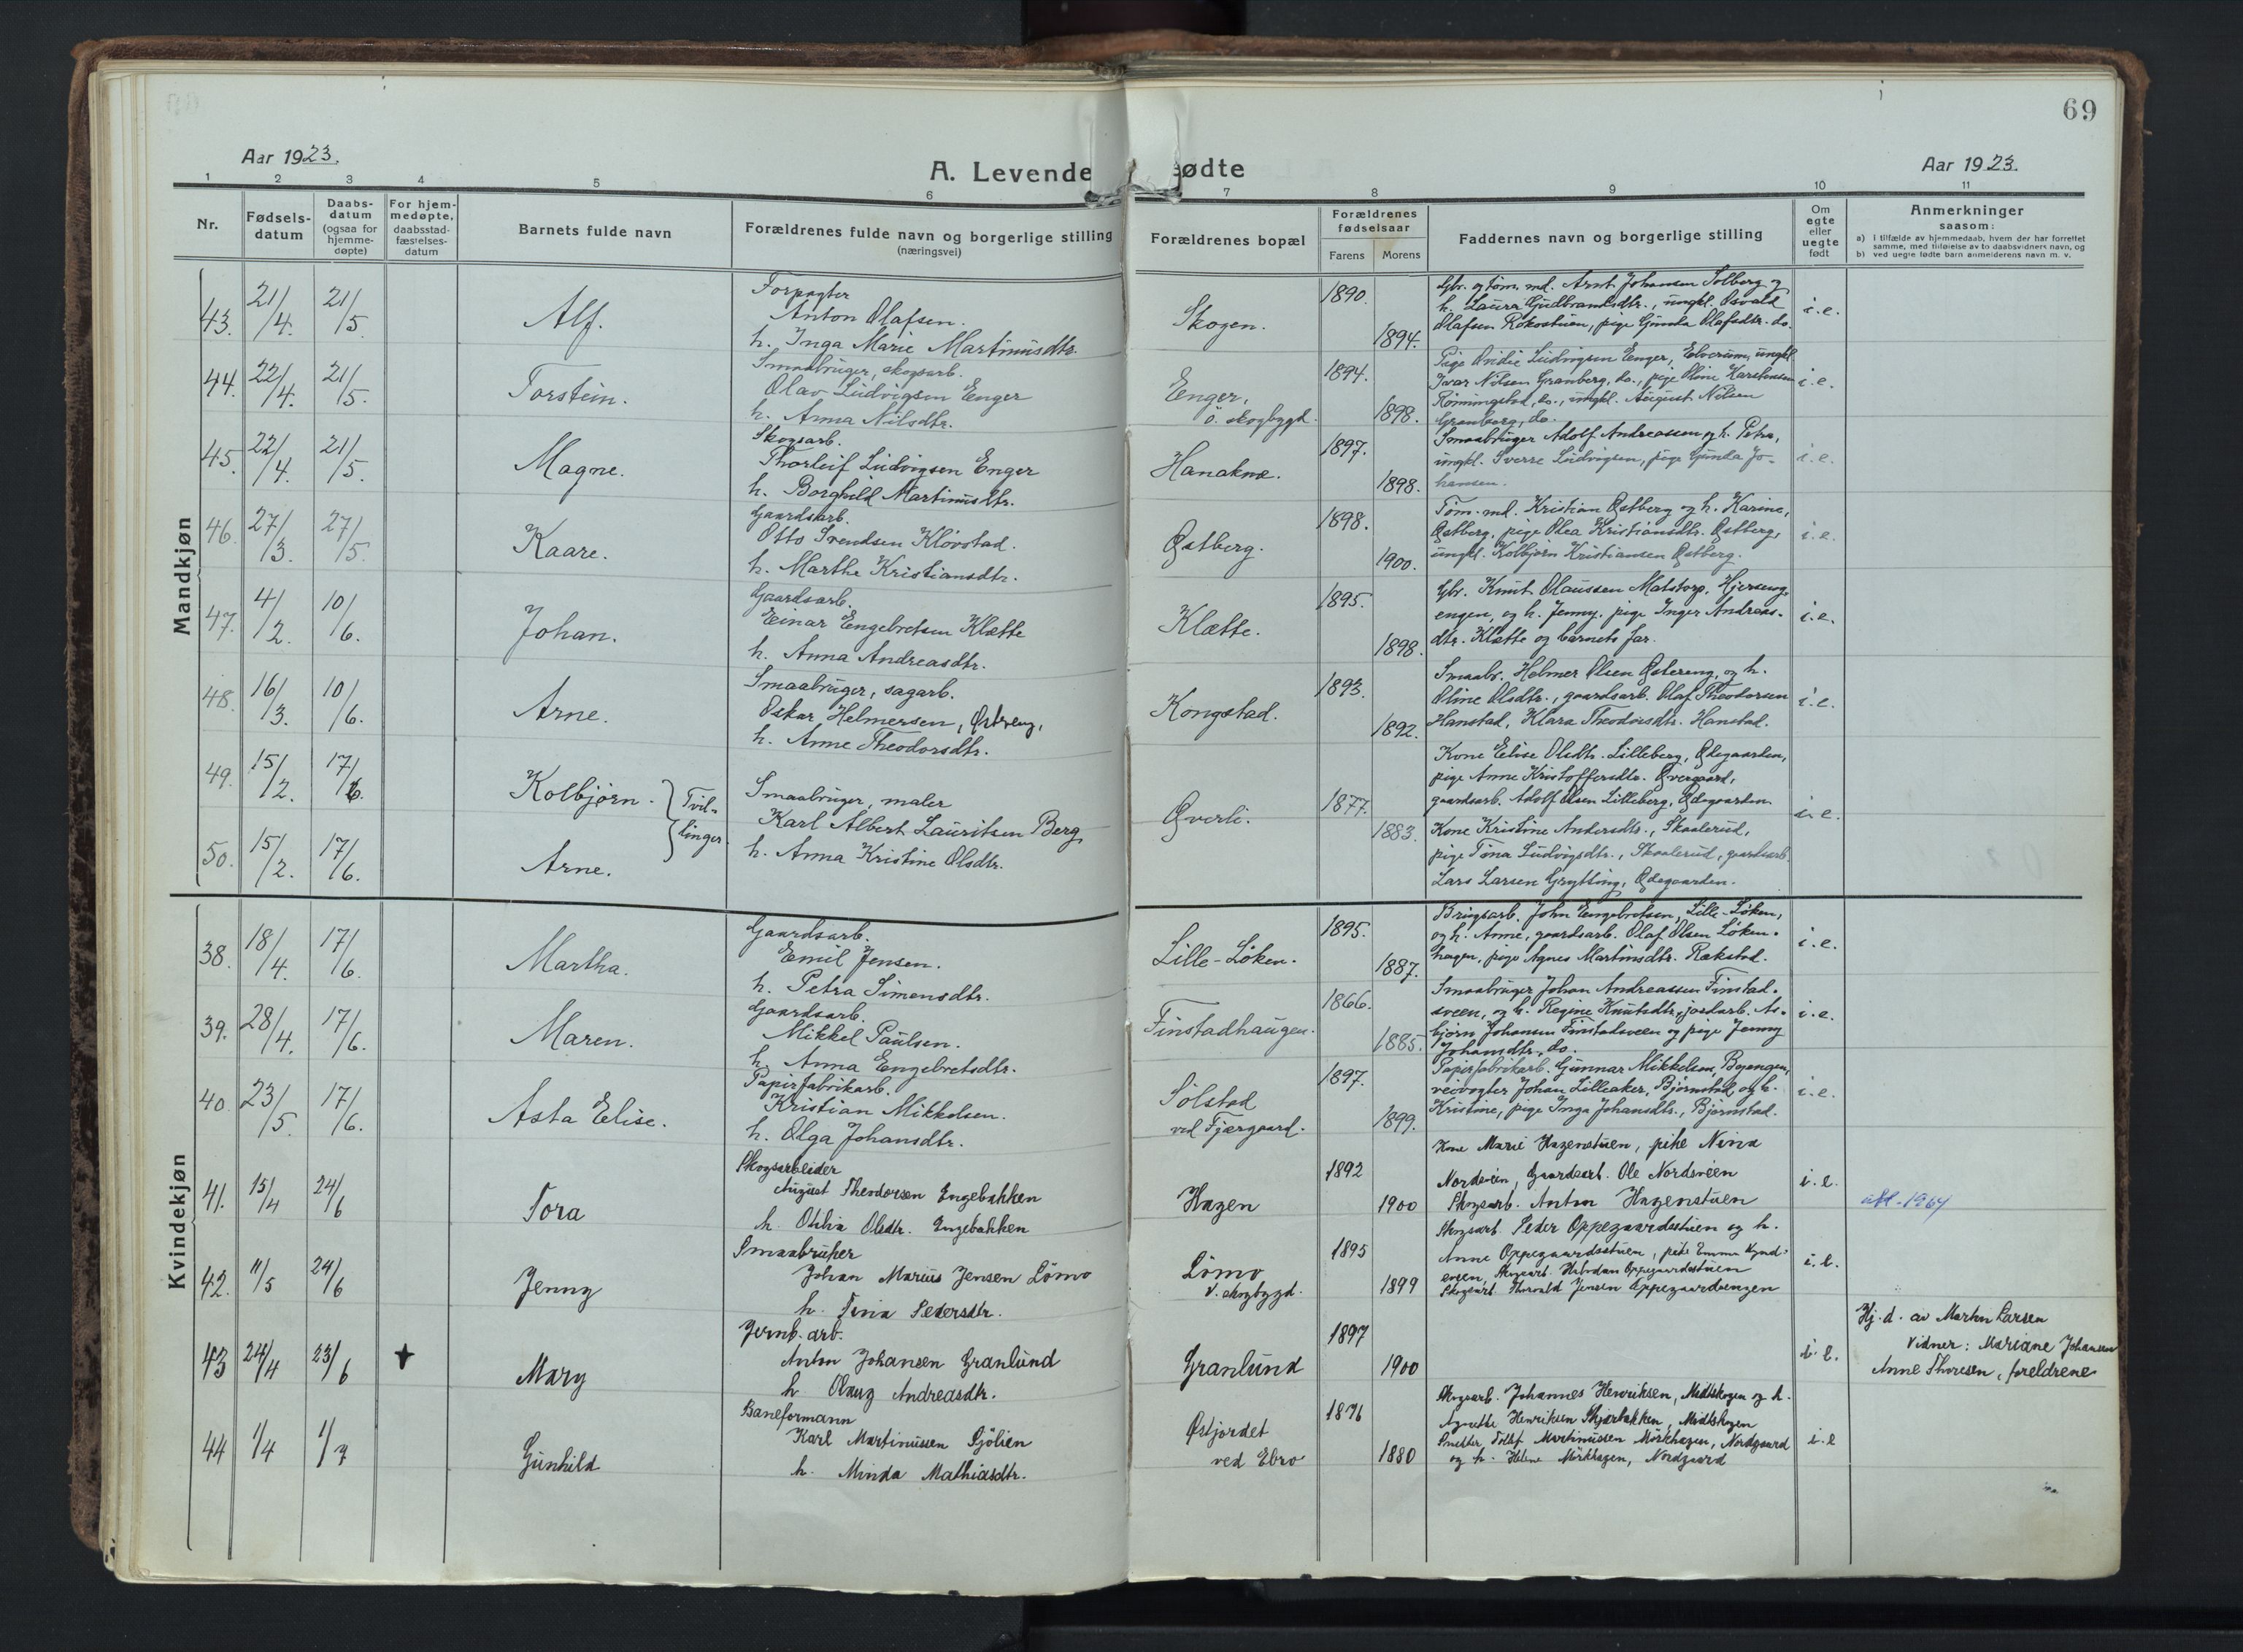 69
Aar 1923.
A. Levende
ødte
Aar 1923.
1 2 3 4 5 6 7 8 9 10 11
Nr.
Fødsels-
datum
Daabs-
datum
(ogsaa for
hjemme-
døpte)
For hjem-
medøpte,
daabsstad-
fæstelses-
datum
Barnets fulde navn
Forældrenes fulde navn og borgerlige stilling
(næringsvei)
Forældrenes bopæl
Forældrenes
fødselsaar
Farens Morens
Faddernes navn og borgerlige stilling
Om
egte
eller
uegte
født
Anmerkninger
saasom:
a) i tilfælde av hjemmedaab, hvem der har forrettet
samme, med tilføielse av to daabsvidners navn, og
b) ved uegte fødte barn anmelderens navn m. v.
Mandkjøn
43. 21/4. 21/5. Alf.
Forpagter
Anton Olafsen.
h. Inga Marie Martinusdtr.
Skogen.
1890.
1894.
Gbr. og tøm. md. Arnt Johansen Solberg og
h. Laura Gudbrandsdtr., ungkl. Osvald
Olafsen Rokostuen, pige Gunda Olafsdtr. do.
i.e.
44. 22/4. 21/5. Torstein.
Smaabruger, skogsarb.
Olav Ludvigsen Enger
h. Anna Nilsdtr.
Enger,
ö. skogbygd.
1894.
1898.
Pige Ovidie Ludvigsen Enger, Elverum, ungkl.
Ivar Nilsen Granberg, do., pige Oline Karstensen
Rønningstad, do., ungkl. August Nilsen
Granberg, do.
i.e.
45. 22/4. 21/5. Magne.
Skogsarb.
Thorleif Ludvigsen Enger
h. Borghild Martinusdtr.
Hanakne.
1897.
1898.
Smaabruger Adolf Andreassen og h. Petra,
ungkl. Sverre Ludvigsen, pige Gunda Jo-
hansen.
i.e.
46. 27/3. 27/5. Kaare.
Gaardsarb.
Otto Svendsen Kløvstad.
h. Marthe Kristiansdtr.
Østberg.
1898.
1900.
Tøm. md. Kristian Østberg og h. Karine,
Østberg, pige Olea Kristiansdtr. Østberg,
ungkl. Kolbjørn Kristiansen Østberg.
i.e.
47. 4/2. 10/6. Johan.
Gaardsarb.
Einar Engebretsen Klætte
h. Anna Andreasdtr.
Klætte.
1895.
1898.
Gbr. Knut Olaussen Matstorp, Hjerseng-
engen, og h. Jenny, pige Inger Andreas-
dtr. Klætte og barnets far.
i.e.
48. 16/3. 10/6. Arne.
Smaabruger, sagarb.
Oskar Helmersen, Østreng,
h. Anne Theodorsdtr.
Kongstad.
1893.
1892.
Smaabr. Helmer Olsen Østereng, og h.
Oline Olsdtr., gaardsarb. Olaf Theodorsen
Hanstad, Klara Theodorsdtr. Hanstad.
i.e.
49. 15/2. 17/6. Kolbjørn.
Tvil-
linger.
50. 15/2. 17/6. Arne.
Smaabruger, maler
Karl Albert Lauritsen Berg
h. Anna Kristine Olsdtr.
Øverli.
1877.
1883.
Kone Elise Olsdtr. Lilleberg, Ødegaarden,
pige Anne Kristoffersdtr. Øvergaard,
gaardsarb. Adolf Olsen Lilleberg, Ødegaarden.
Kone Kristine Andersdtr., Skaalerud,
pige Tina Ludvigsdtr., Skaalerud, gaardsarb.
Lars Larsen Grytting, Ødegaarden.
i.e.
Kvindekjøn
38. 18/4. 17/6. Martha.
Gaardsarb.
Emil Jensen.
h. Petra Simensdtr.
Lille-Løken.
1895.
1887.
Brugsarb. John Engebretsen, Lille-Løken,
og h. Anne, gaardsarb. Olaf Olsen Løken-
hagen, pige Agnes Martinsdtr. Rækstad.
i.e.
39. 28/4. 17/6. Maren.
Gaardsarb.
Mikkel Paulsen.
h. Anna Engebretsdtr.
Finstadhaugen.
1866.
1885.
Smaabruger Johan Andreassen Finstad-
sveen, og h. Regine Knutsdtr., jordarb. As-
bjørn Johansen Finstadsveen og pige Jenny
Johansdtr., do.
i.e.
40. 23/5. 17/6. Asta Elise.
Papirfabrikarb.
Kristian Mikkelsen.
h. Olga Johansdtr.
Solstad
ved Fjærgaard.
1897.
1899.
Papirfabrikarb. Gunnar Mikkelsen, Boængen,
veivogter Johan Lilleaker, Bjørnstad, og h.
Kristine, pige Inga Johansdtr., Bjørnstad.
i.e.
41. 15/4 24/6 Tora
Skogsarbeider
August Theodorsen Engebakken
h. Otilia Olsdtr. Engebakken
Hagen
1892
1900
Kone Marie Hagenstuen, pike Nina
Nordsveen, Gaardsarb. Ole Nordsveen
Skogsarb. Anton Hagenstuen
i.e.
utd.-1964
42. 11/5 24/6 Jenny
Smaabruker
Johan Marius Jensen Lömo
h. Tina Pedersdtr.
Lömo
v. skogbygd.
1895
1899
Skogsarb. Peder Oppegaardsstuen og h.
Anne Oppegaardsstuen, pike Emma Kynd-
engen, Skogsarb. Halvdan Oppegaardsstuen
Skogsarb. Thorvald Jensen Oppegaardsengen
i.e.
43 24/4 23/6 + Mary
Jernb. arb.
Anton Johansen Granlund
h Olaug Andreasdtr.
Granlund
1897
1900
i.e.
Hj. d. av Martin Larsen
Vidner: Mariane Johansen
Anne Thoresen, foreldrene
44 1/4 1/7 Gunhild
Baneformann
Karl Martinussen Sjölien
h. Minda Mathiasdtr.
Østjordet
ved Ebro
1876
1880
Skogsarb. Johannes Henriksen, Midtskogen og h.
Agnethe Henriksen Skjærbakken, Midtskogen
Snekker Tollef Martinussen Mörkhagen, Nordgaard
og h. Helene Mörkhagen, Nordgaard
i.e